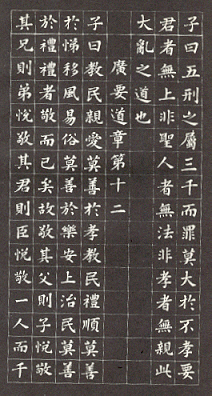 子曰五刑之屬三千而罪莫大於不孝要
君者無上非聖人者無法非孝者無親此
大亂之道也
廣要道章第十二
子曰教民親愛莫善於孝教民禮順莫善
於悌移風易俗莫善於樂安上治民莫善
於禮禮者敬而已矣故敬其父則子悅敬
其兄則弟悅敬其君則臣悅敬一人而千